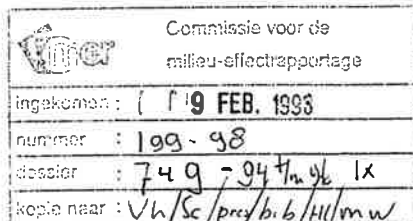 mer
Commissie voor de
milieu-effectrapportage
ingekomen : 9 FEB. 1998
nummer : 199-98
dossier : 749-94 t/m 96 1x
kopie naar : Vh/Sc/pres/bib/Hl/mw